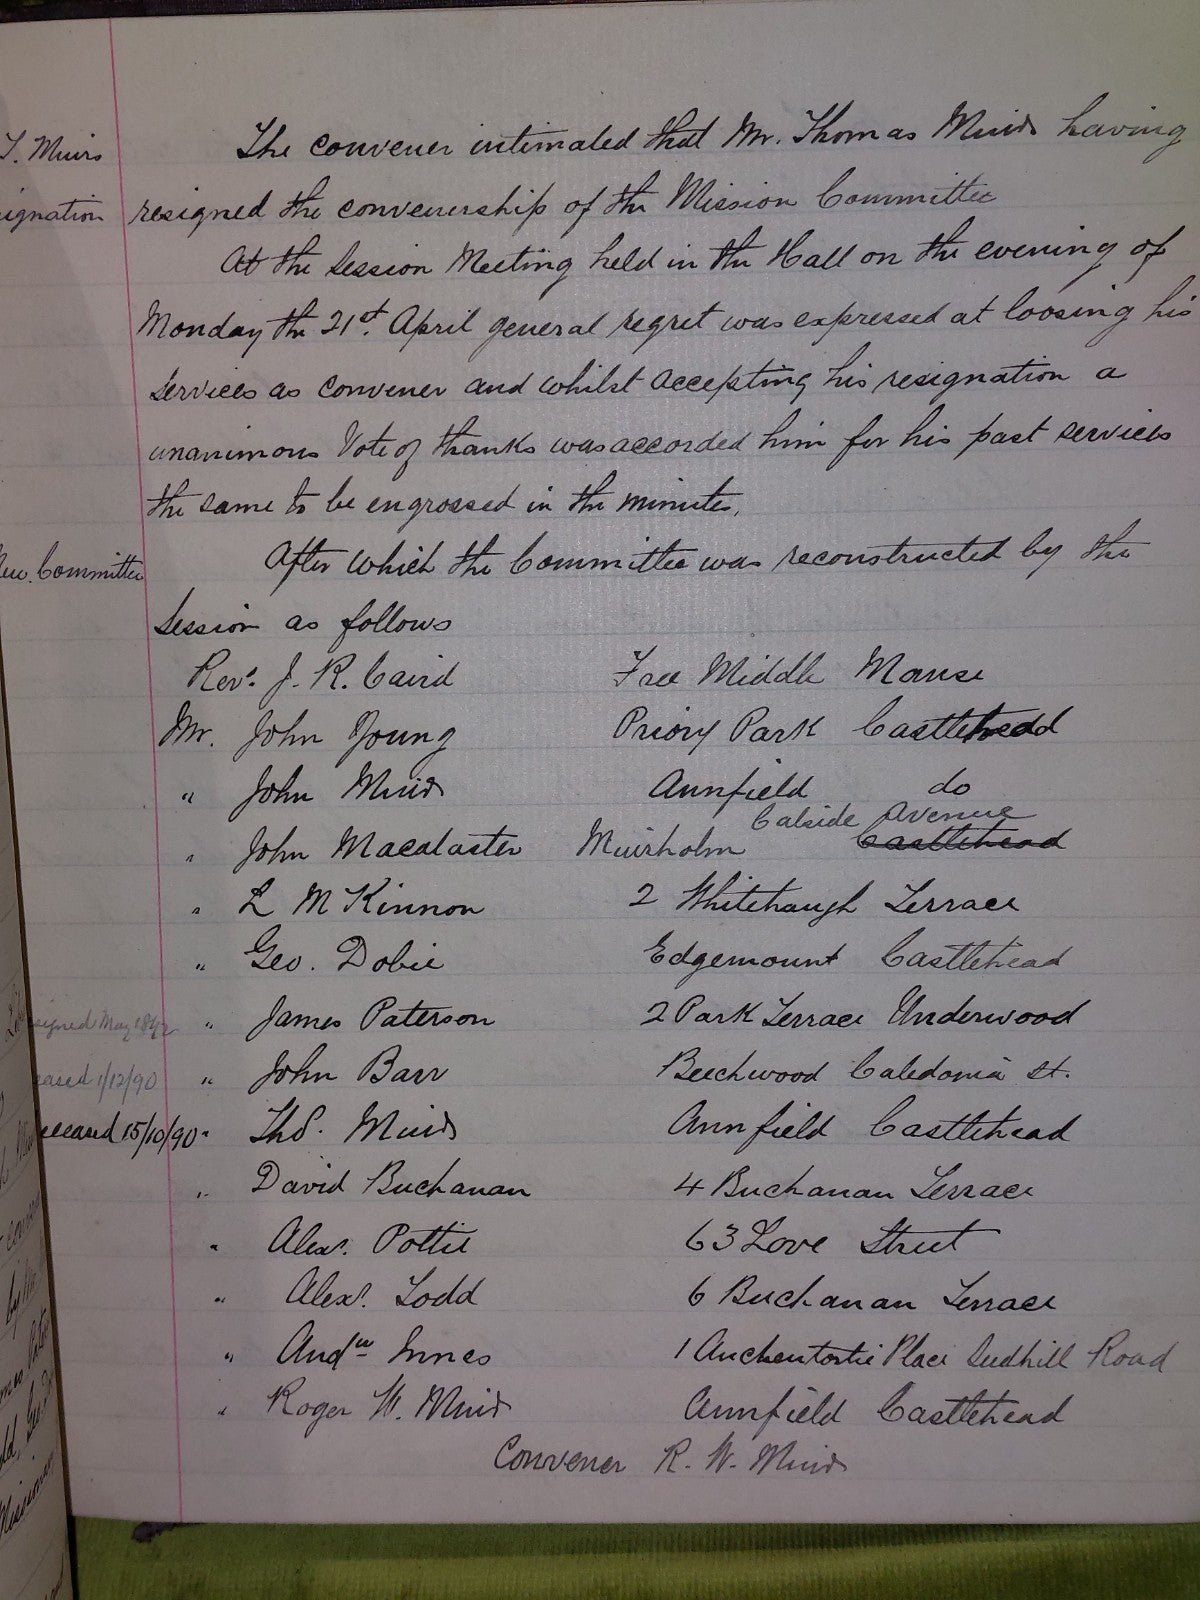 The convener intimated that Mr. Thomas Muir having
T. Muirs
resigned the convenership of the Mission Committee
ignation
At the Session Meeting held in the Hall on the evening of
Monday the 21st. April general regret was expressed at loosing his
services as convener and whilst accepting his resignation a
unanimous Vote of thanks was accorded him for his past services
the same to be engrossed in the minutes.
After which the Committee was reconstructed by the
New. Committee
Session as follows
Revd. J. R. Caird Free Middle Manse
Mr. John Young Priory Park Castlehead
" John Muir Annfield do
Calside Avenue
" John Macalaster Muirholm Castlehead
" L McKinnon 2 Whitehaugh Terrace
" Geo. Dobie Edgemount Castlehead
signed May 1892 " James Paterson 2 Park Terrace Underwood
eased 1/12/90 " John Barr Beechwood Caledonia St.
eceased 15/10/90 " Thos. Muir Annfield Castlehead
" David Buchanan 4 Buchanan Terrace
" Alexr. Pottie 63 Love Street
" Alexr. Todd 6 Buchanan Terrace
" Andw Innes 1 Auchentorlie Place Seedhill Road
" Roger W. Muir Annfield Castlehead
Convener R. W. Muir